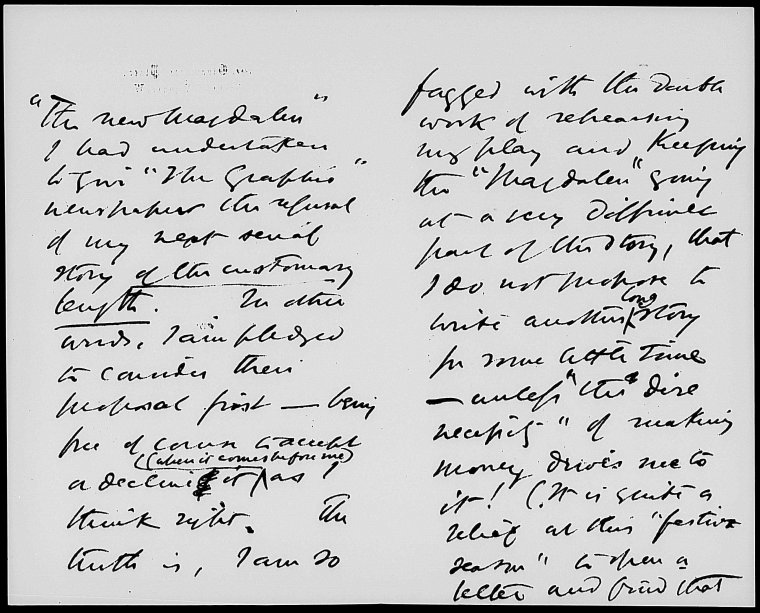 "The new Magdalen"
I had undertaken
to give "The Graphic"
newspaper the refusal
of my next serial
story of the customary
length. In other
words, I am pledged
to consider their
proposal first — being
free of course to accept
(when it comes before me)
or decline it as I
think right. The
truth is, I am so
fagged with the double
work of rehearsing
my play and keeping
the "Magdalen" going
at a very difficult
part of the story, that
I do not propose to
write another long story
for some little time
— unless "the dire
necessity" of making
money drives me to
it! (It is quite a
relief at this "festive
season" to open a
letter and find that